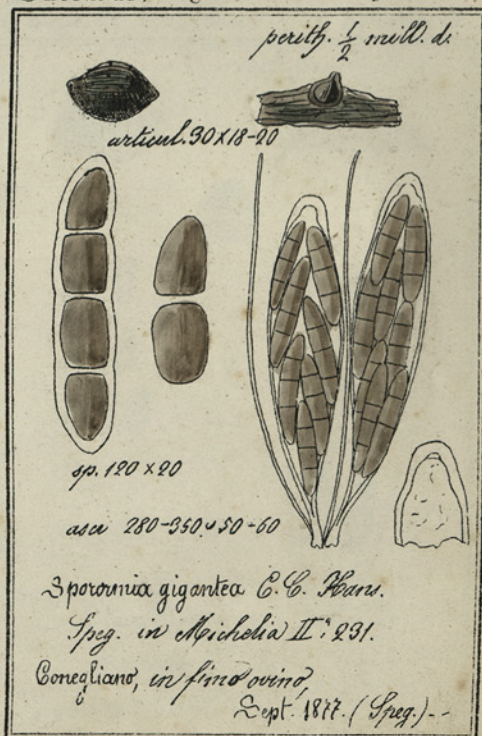 perith. 1/2 mill. d.
articul. 30 x 18-20
sp. 120 x 20
asci 280-350 x 50-60
Sporormia gigantea E. C. Hans.
Speg. in Michelia II: 231.
Conegliano, in fimo ovino,
Sept. 1877. (Speg.) --